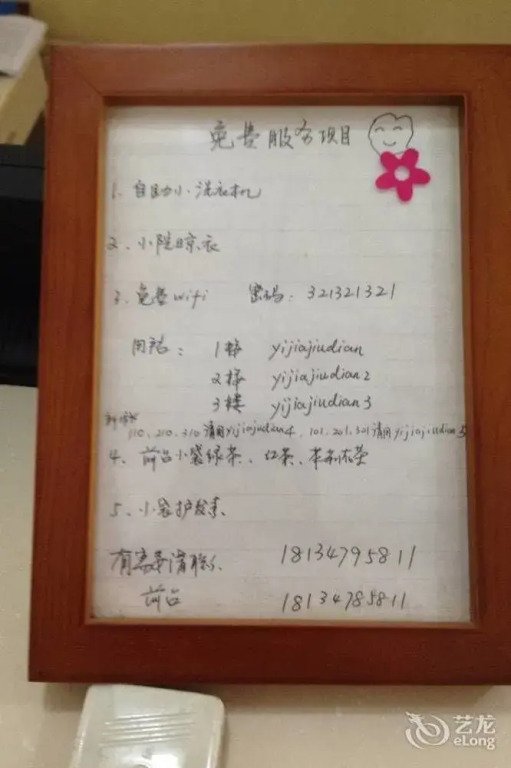 免费服务项目
1、自助小洗衣机
2、小院晾衣
3、免费wifi 密码：321321321
网络：1楼 yijiajiudian
2楼 yijiajiudian2
3楼 yijiajiudian3
110、210、310请用yijiajiudian4、101、201、301请用yijiajiudian5
4、前台小袋绿茶、红茶、
5、小袋护发素
有需要请联系 18134795811
前台 18134785811
艺龙
eLong